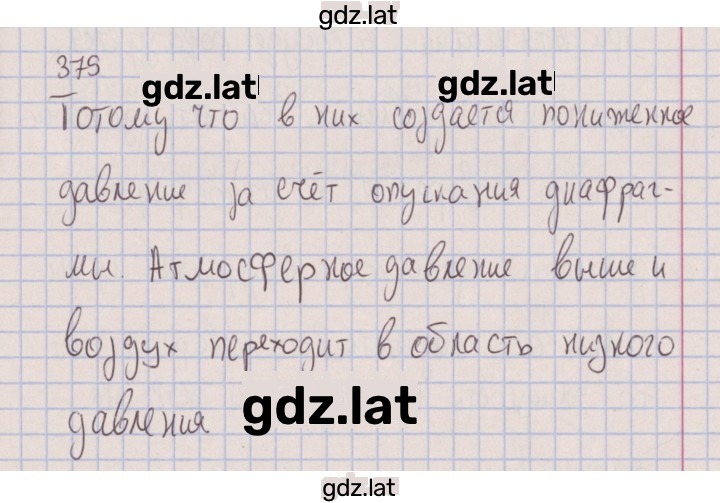 gdz.lat
379
gdz.lat gdz.lat
Потому что в них создается пониженное
давление за счёт опускания диафраг-
мы. Атмосферное давление выше и
воздух переходит в область низкого
давления
gdz.lat
gdz.lat